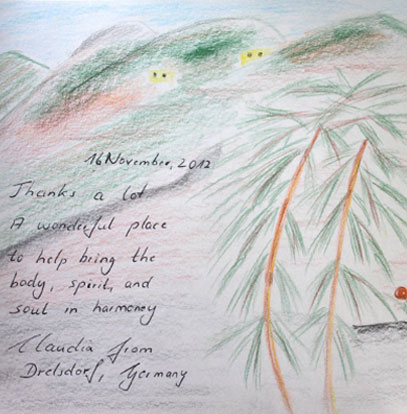 16 November, 2012
Thanks a lot
A wonderful place
to help bring the
body, spirit, and
soul in harmoney
Claudia from
Drelsdorf, Germany